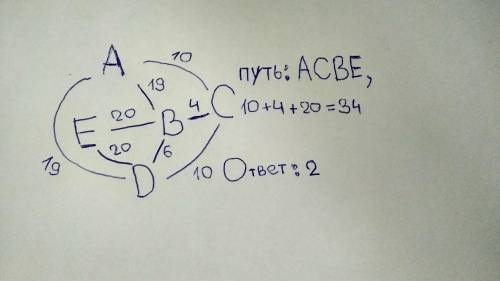 A 10
19
E 20 B 4 C
20 6
19 D 10
путь: ACBE,
10+4+20=34
Ответ: 2